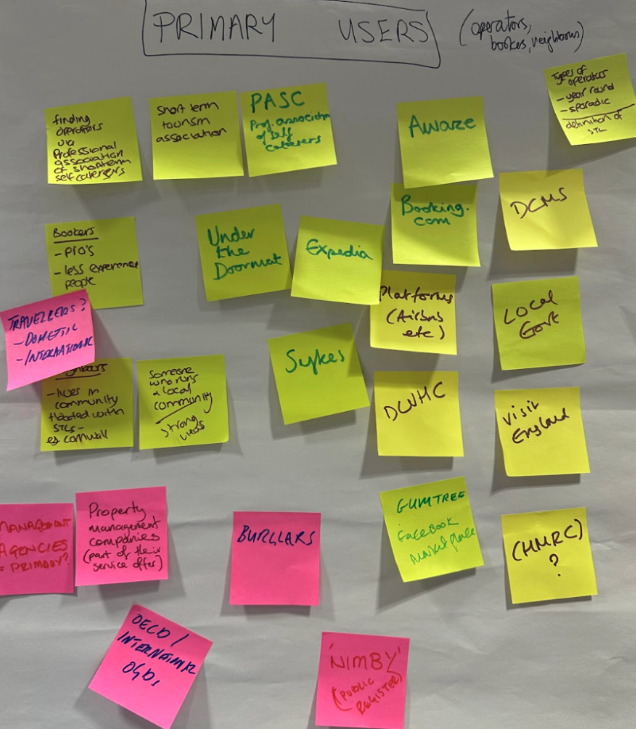 PRIMARY USERS
(operators,
bookers, neighbours)
finding
operators
via
Professional
association
of short term
self caterers
Short term
tourism
association
PASC
Prof. association
of
caterers
Awaze
Types of
operators
- year round
- sporadic
definition of
STL
Bookers
- PFO's
- less experience
people
Under
the
Doormat
Expedia
Booking.
com
DCMS
TRAVELLERS?
- DOMESTIC
- INTERNATIONAL
Platforms
(Airbnb
etc)
Local
Govt
Sykes
- lives in
community
flooded with
STLs -
eg cornwall
Someone
who runs
a local
community
strong
views
DLUHC
Visit
England
MANAGEMENT
AGENCIES
= PRIMARY?
Property
management
companies
(part of their
service offer)
BURGLARS
GUMTREE
FACEBOOK
marketplace
(HMRC)
?
OECD/
INTERNATIONAL
OGDs
'NIMBY'
(PUBLIC
REGISTER)